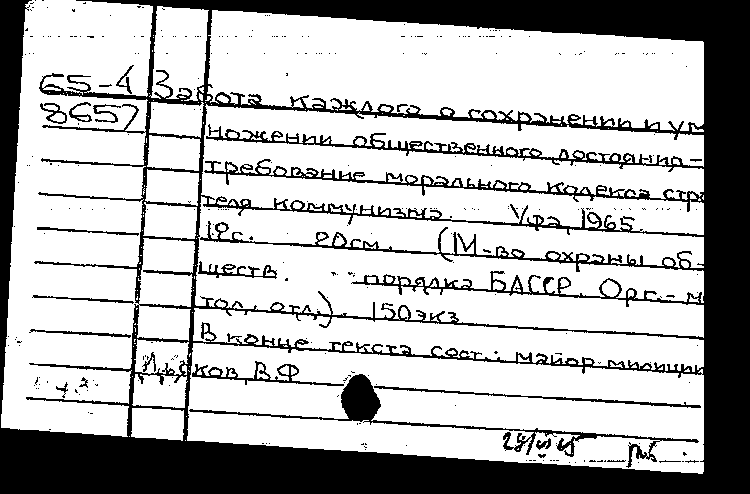 65-4 Забота каждого о сохранении и ум
8657
ножении общественного достояния -
требование морального кодекса стро
теля коммунизма. Уфа, 1965.
19с. 20см. (М-во охраны об-
ществ. порядка БАССР. Орг.-м
тод. отд.). 150 экз
В конце текста сост.: майор милиции
В.Ф